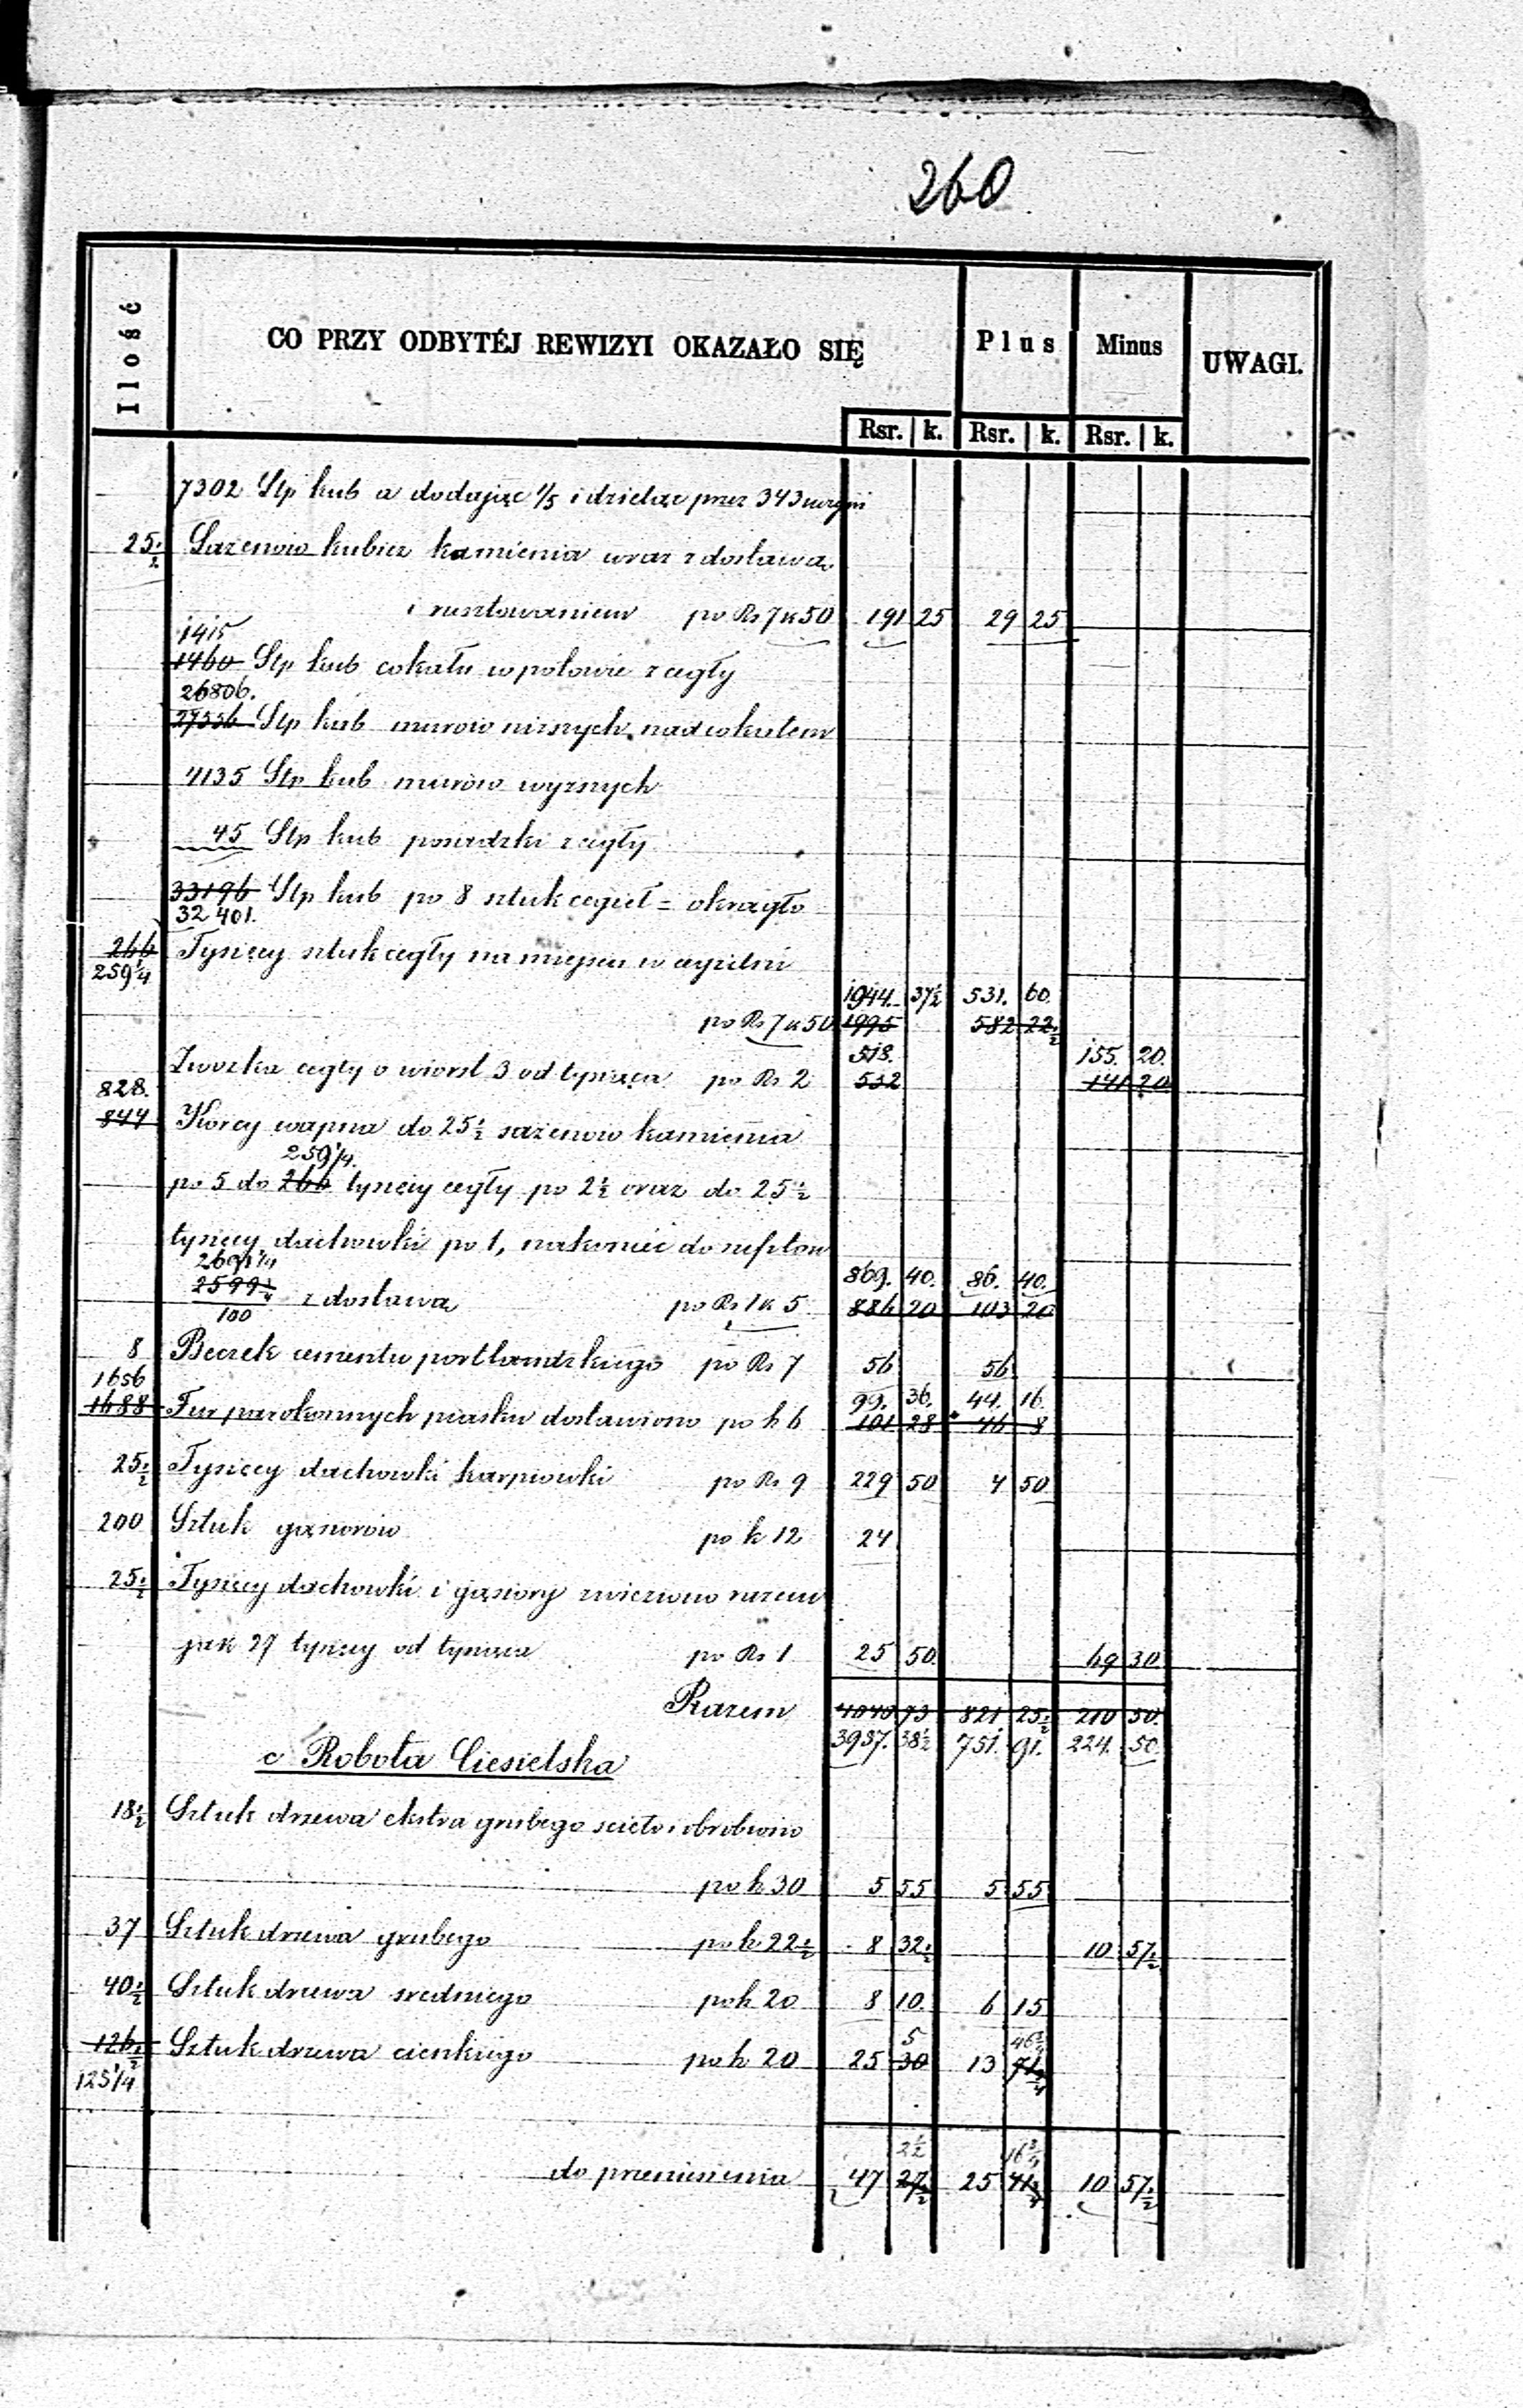 260
Ilość
CO PRZY ODBYTÉJ REWIZYI OKAZAŁO SIĘ
Plus Minus UWAGI.
Rsr. k. Rsr. k. Rsr. k.
7302 Stp kub a dodając 1/5 i dzieląc przez 343
25 1/2 Sazenow kubicz kamienia wraz z dostawa
i rusztowaniem po Rs 7 k 50 191 25 29 25
1415
1460 Stp kub cokału w połowie z cegły
26806.
27556 Stp kub murow niznych nad cokułem
4135 Stp kub murów wyznych
45 Stp kub posadzki z cegły
33196 Stp kub po 8 sztuk cegieł = okrągło
32 401.
266 Tysięcy sztuk cegły na miejscu w cegielni
259 1/4
1944. 37 1/2 531. 60.
po Rs 7 k 50 1995 582 22 1/2
518. 155. 20.
Zwozka cegły o wiorst 3 od tysiąca po Rs 2 532 141 20
828.
844 Korcy wapna do 25 1/2 sazenow kamienia
259 1/4.
po 5 do 266 tysięcy cegły po 2 1/2 oraz do 25 1/2
tysięcy dachowki po 1, nakoniec do
869. 40. 86. 40.
2599 1/4 z dostawa po Rs 1 k 5 886 20 103 20
100
8 Beczek cementu portlandzkiego po Rs 7 56 56
1656 99. 36. 44. 16.
1688 Fur parokonnych piasku dostawiono po k 6 101 28 46 8
25 1/2 Tysięcy dachowki karpiowki po Rs 9 229 50 4 50
200 Sztuk gąsiorow po k 12 24
25 1/2 Tysięcy dachowki i gąsiory zwieziono razem
jak 27 tysięcy od tysiąca po Rs 1 25 50. 69 30.
Razem 4040 73 821 25 1/2 210 50.
3937. 38 1/2 751. 91. 224. 50
c Robota Ciesielska
18 1/2 Sztuk drzewa ekstra grubego scieto i obrobiono
po k 30 5 55 5 55
37 Sztuk drzewa grubego po k 22 1/2 8 32 1/2 10 57 1/2
40 1/2 Sztuk drzewa sredniego po k 20 8 10. 6 15
5 46 3/4
126 1/2 Sztuk drzewa cienkiego po k 20 25 30 13 71 3/4
125 1/4
2 1/2 16 3/4
do przeniesienia 47 27 1/2 25 41 3/4 10 57 1/2